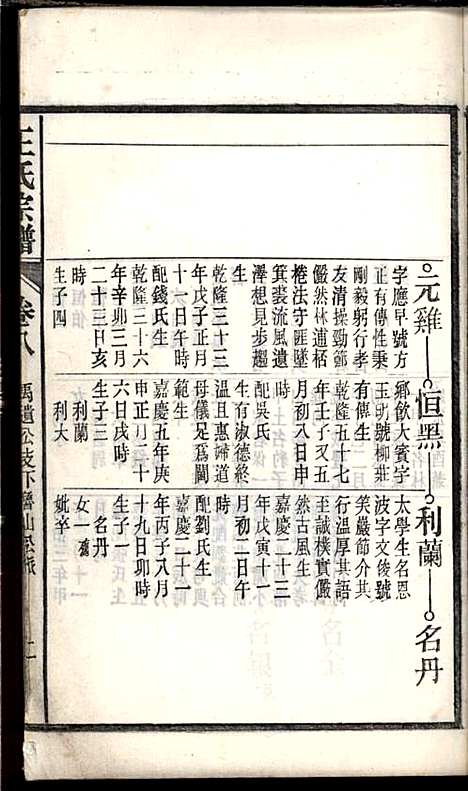 元雞——恒黑——利蘭——名丹
字應早號方
正有傳性秉
剛毅躬行孝
友清操勁節
儼然林逋栢
梱法守匯墜
箕裘流風遺
澤想見步趨
生
乾隆三十三
年戊子正月
十六日午時
配錢氏生
乾隆三十六
年辛卯三月
二十三日亥
時
生子四
鄉飲大賓字
玉明號柳莊
有傳生
乾隆五十七
年壬子又五
月初八日申
時
配吳氏
生有淑德終
溫且惠諦道
母儀足爲閫
範生
嘉慶五年庚
申正月二十
六日戌時
生子三
利蘭
利大
太學生名恩
波字文俊號
笑嚴節分其
行溫厚其語
至誠樸實儼
然古風生
嘉慶二十三
年戊寅十一
月初二日午
時
配劉氏生
嘉慶二十一
年丙子八月
十九日卯時
生子一
名丹
女一
妣卒
王氏宗譜
卷八
禹道公枝下
二